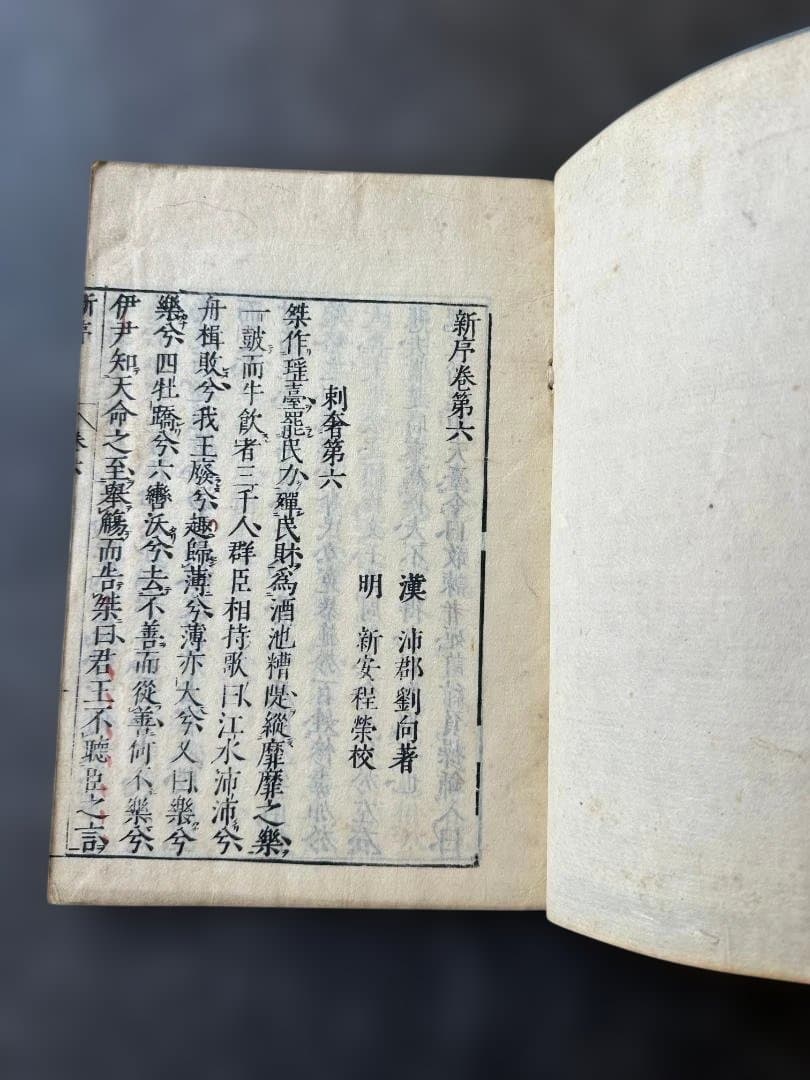 新序卷第六
漢 沛郡劉向著
明 新安程榮校
刺奢第六
桀作瑤臺罷民力殫民財爲酒池糟隄縱靡靡之樂
一鼓而牛飮者三千人群臣相持歌曰江水沛沛兮
舟楫敗兮我王廢兮趣歸薄兮薄亦大兮又曰樂兮
樂兮四牡蹻兮六轡沃兮去不善而從善何不樂兮
伊尹知天命之至舉觴而告桀曰君王不聽臣之言
新序 卷六